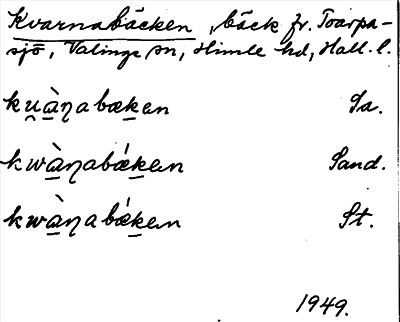 Kvarnabäcken, bäck fr. Toarpa-
sjö, Valinge sn, Himle hd, Hall. l.
ku̯àꞃabæken Sa.
kwàꞃabǽken Sand.
kwàꞃabǽken St.
1949.